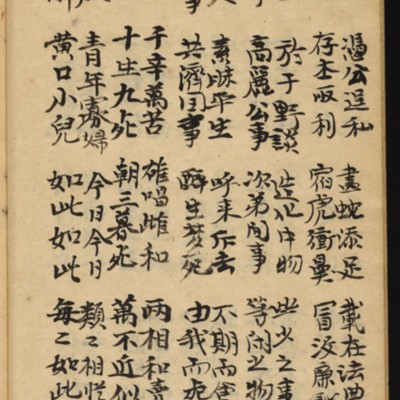 憑公逞私 畫蛇添足 載在法典
存本取利 宿虎衝鼻 冒没廉
於于野談 造化中物 些少之事
高麗公事 次第间事 等闲之物
素昧平生 呼来斥去 不期而會
事 共濟同事 醉生梦死 由我而死
千辛萬苦 雄唱雌和 兩相和賣
十生九死 朝三暮死 萬不近似
青年寡婦 今日今日 類〻相從
黄口小兒 如此如此 每〻如此